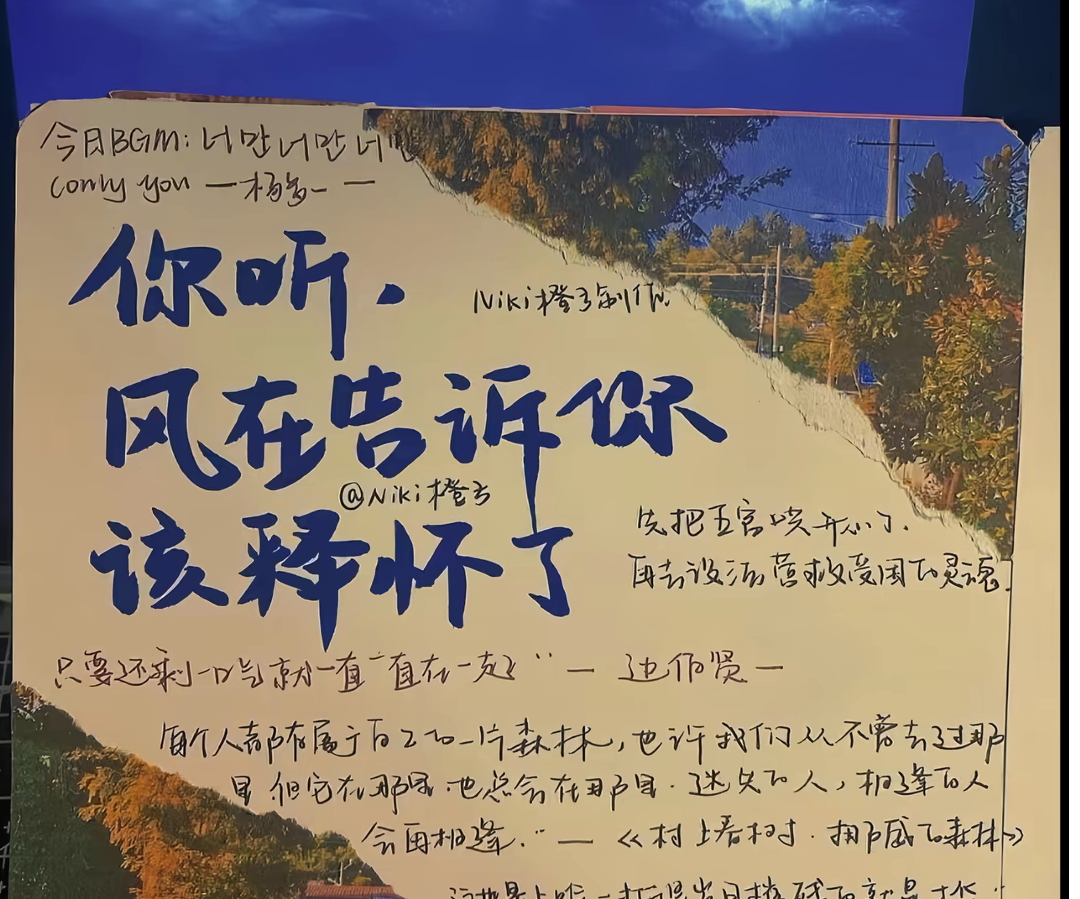 今日BGM: 너만 너만 너만
(only you — 杨多一 —
你听.
Niki橙子制作
风在告诉你
@Niki橙子
该释怀了
先把五官哄开心了.
再去设法营救受困的灵魂.
只要还剩一口气就一直一直在一起" — 边伯贤 —
每个人都有属于自己的一片森林,也许我们从不曾去过那
里.但它在那里.也总会在那里.迷失的人,相逢的人
会再相逢." — 《村上春树.挪威的森林》